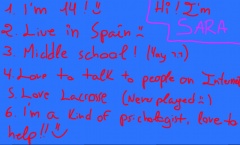 1 I'm 14!! :)
Hi! I'm
SARA
2. Live in Spain :)
3 Middle school! (Yay >.<)
4 Love to talk to people on Internet
5 Love Lacrosse (Never played :()
6. i'm a kind of psichologist, love to
help!! :)